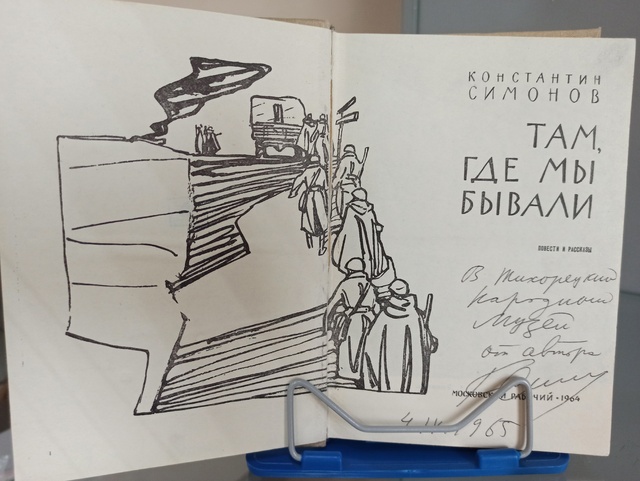 КОНСТАНТИН
СИМОНОВ
ТАМ,
ГДЕ МЫ
БЫВАЛИ
ПОВЕСТИ И РАССКАЗЫ
В Тихорецкий
народный
Музей
от автора
МОСКОВСКИЙ РАБОЧИЙ • 1964
1965